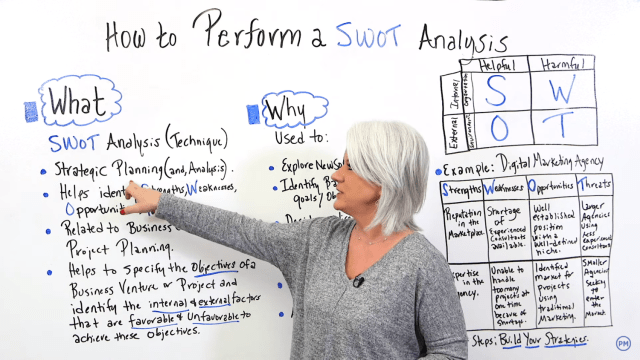 How to Perform a SWOT Analysis
What
SWOT Analysis (Technique)
Strategic Planning (and, Analysis).
Helps Strengths, Weaknesses,
Related to Business
Project Planning.
Helps to Specify the Objectives of a
Business Venture or Project and
identify the internal & external factors
that are favorable & Unfavorable to
achieve these Objectives.
Why
Used to:
Explore New
Identify
Goals/
Helpful Harmful
Internal
S W
External
O T
Example: Digital Marketing Agency
Strengths Weaknesses Opportunities Threats
Reputation
in the
Marketplace.
Shortage
of
Experienced
Consultants
available.
Well
established
position
with a
well-defined
niche.
Larger
Agencies
using
Less
experienced
Consultants
Expertise
in the
Agency.
Unable to
handle
too many
projects at
one time
because of
shortage.
Identified
market for
projects
using
traditional
Marketing.
Smaller
Agencies
Seeking
to enter
the
Market.
Steps: Build Your Strategies.
PM